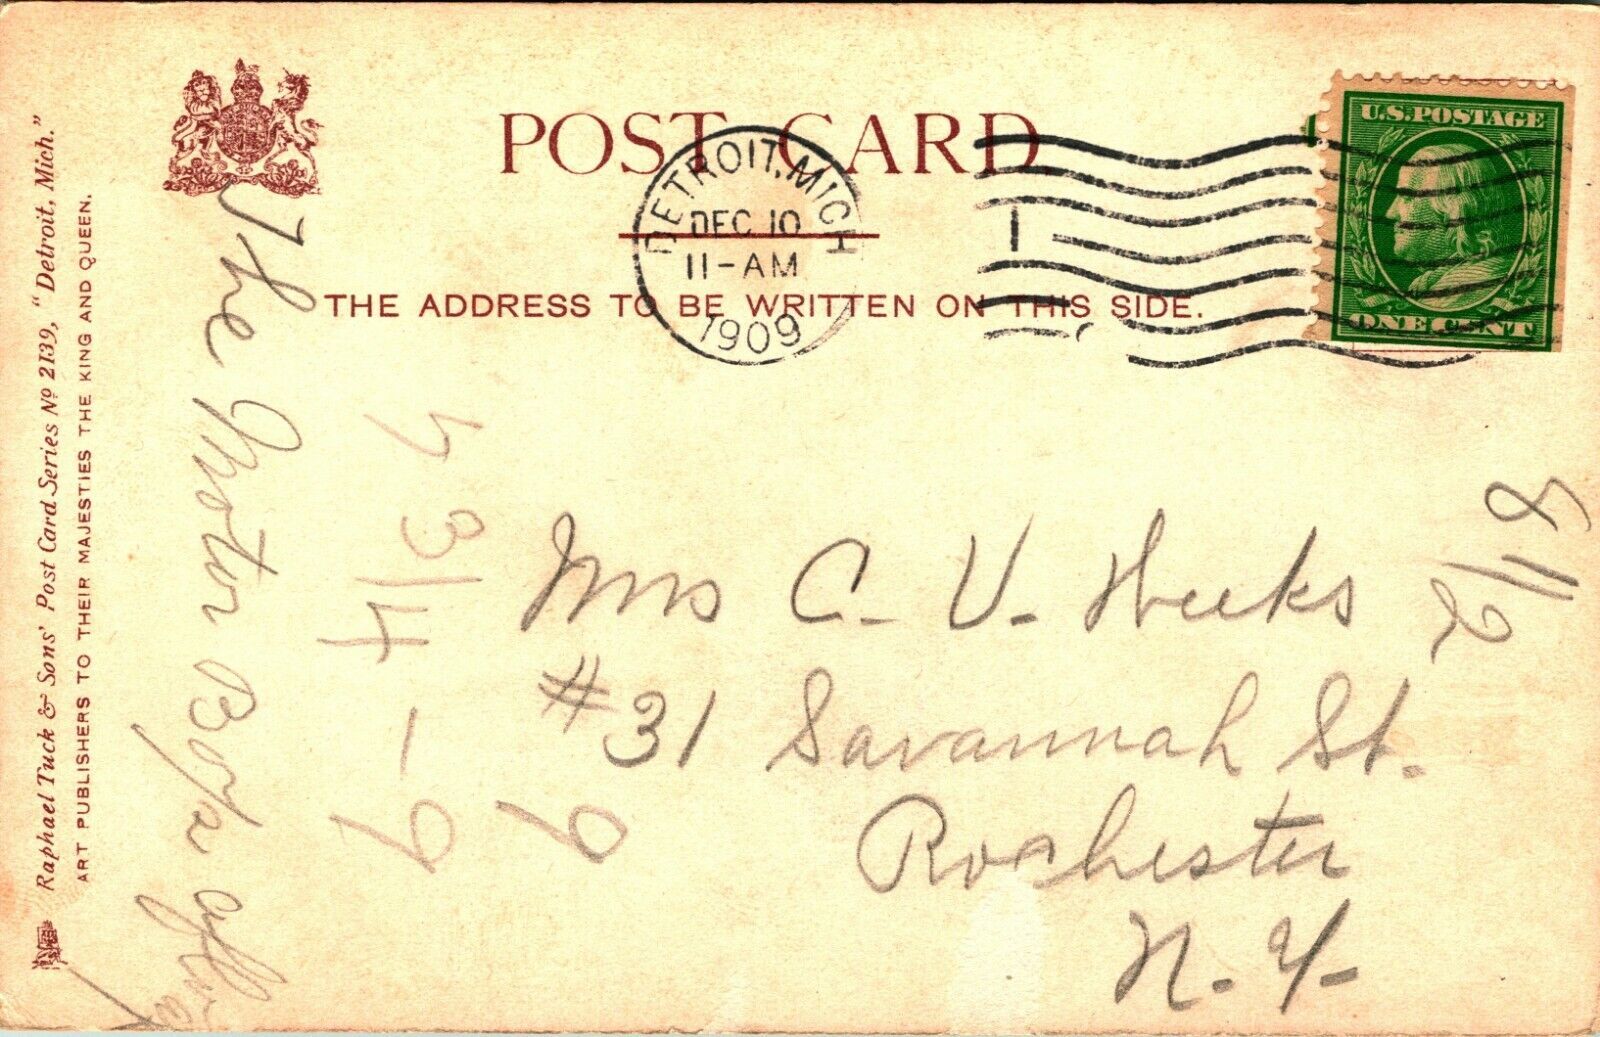 POST CARD
THE ADDRESS TO BE WRITTEN ON THIS SIDE.
DETROIT, MICH
DEC 10
11-AM
1909
1
U.S. POSTAGE
ONE CENT
Raphael Tuck & Sons' Post Card Series Nº 2139, "Detroit, Mich."
ART PUBLISHERS TO THEIR MAJESTIES THE KING AND QUEEN.
The Motor Boys
Mrs C. V. Weeks
#31 Savannah St.
Rochester
N. Y.
8 1/2
9